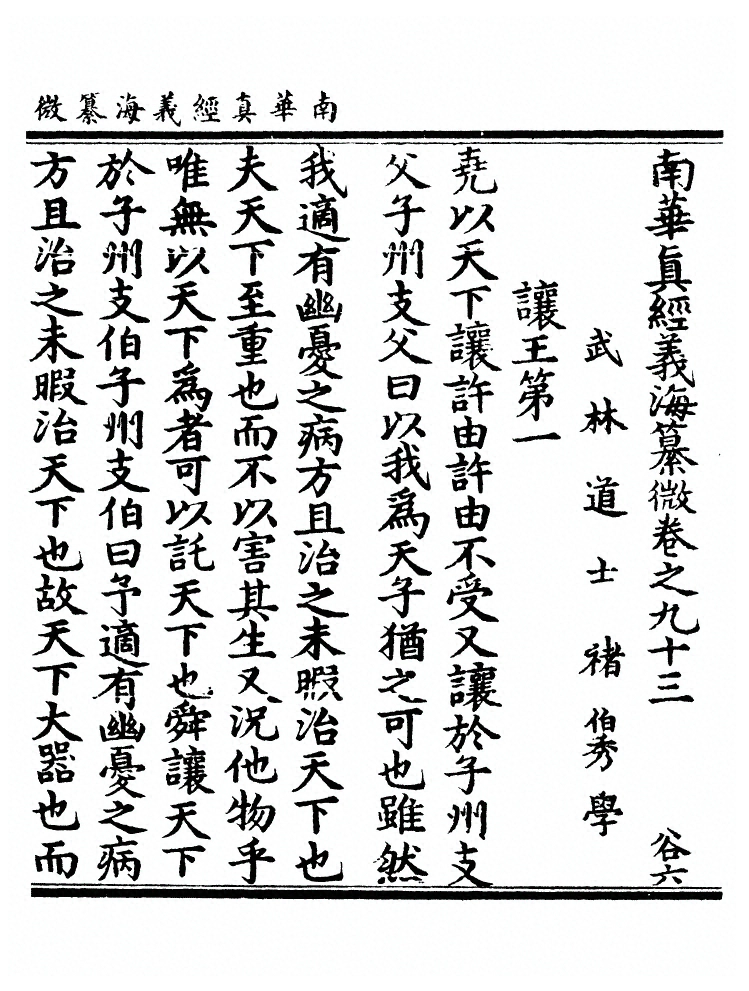 南華真經義海纂微
南華真經義海纂微卷之九十三 谷六
武林道士褚伯秀學
讓王第一
堯以天下讓許由許由不受又讓於子州支
父子州支父曰以我為天子猶之可也雖然
我適有幽憂之病方且治之未暇治天下也
夫天下至重也而不以害其生又況他物乎
唯無以天下為者可以託天下也舜讓天下
於子州支伯子州支伯曰予適有幽憂之病
方且治之未暇治天下也故天下大器也而